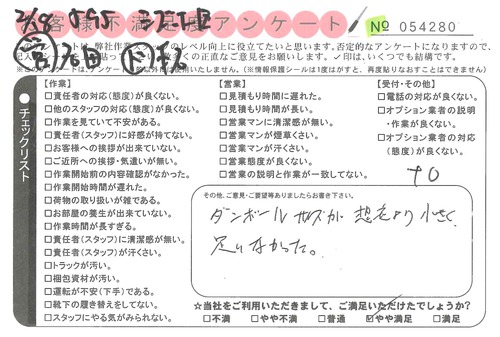 2/18
お客様不満足度アンケート
№ 054280
このアンケートは、弊社作業スタッフのレベル向上に役立てたいと思います。否定的なアンケートになりますので、
くの正直なご意見をお願いします。✓印は、いくつでも結構です。
以外には使用いたしません。(※情報保護シールは1度がすと、再度貼りなおすことはできません)
チェックリスト
【作業】
□責任者の対応(態度)が良くない。
□他のスタッフの対応(態度)が良くない。
□作業を見ていて不安がある。
□責任者(スタッフ)に好感が持てない。
□お客様への挨拶が出来ていない。
□ご近所への挨拶・気遣いが無い。
□作業開始前の内容確認がなかった。
□作業開始時間が遅れた。
□荷物の取り扱いが雑である。
□お部屋の養生が出来ていない。
□作業時間が長すぎる。
□責任者(スタッフ)に清潔感が無い。
□責任者(スタッフ)が汗くさい。
□トラックが汚い。
□梱包資材が汚い。
□運転が不安(下手)である。
□靴下の履き替えをしてない。
□スタッフにやる気がみられない。
【営業】
□見積もり時間に遅れた。
□見積もり時間が長い。
□営業マンに清潔感が無い。
□営業マンが煙草くさい。
□営業マンが汗くさい。
□営業態度が良くない。
□営業の説明と作業が一致してない。
【受付・その他】
□電話の対応が良くない。
□オプション業者の説明
・作業が良くない。
□オプション業者の対応
(態度)が良くない。
その他、ご意見・ご要望等ありましたらお書き下さい。
ダンボールサイズが想定より小さく、
足りなかった。
☆当社をご利用いただきまして、ご満足いただけたでしょうか?
□不満 □やや不満 □普通 ☑やや満足 □満足